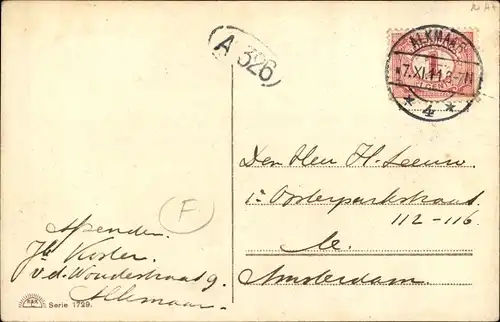 A 326
ALKMAAR
7.XI.11.6-7N
* 4 *
1
CENT
Den Heer H. Leeuw.
1e Oosterparkstraat
112-116
te.
Amsterdam.
F
Afzender.
Koster
v.d. Woudestraat 9.
Alkmaar
Serie 1729.